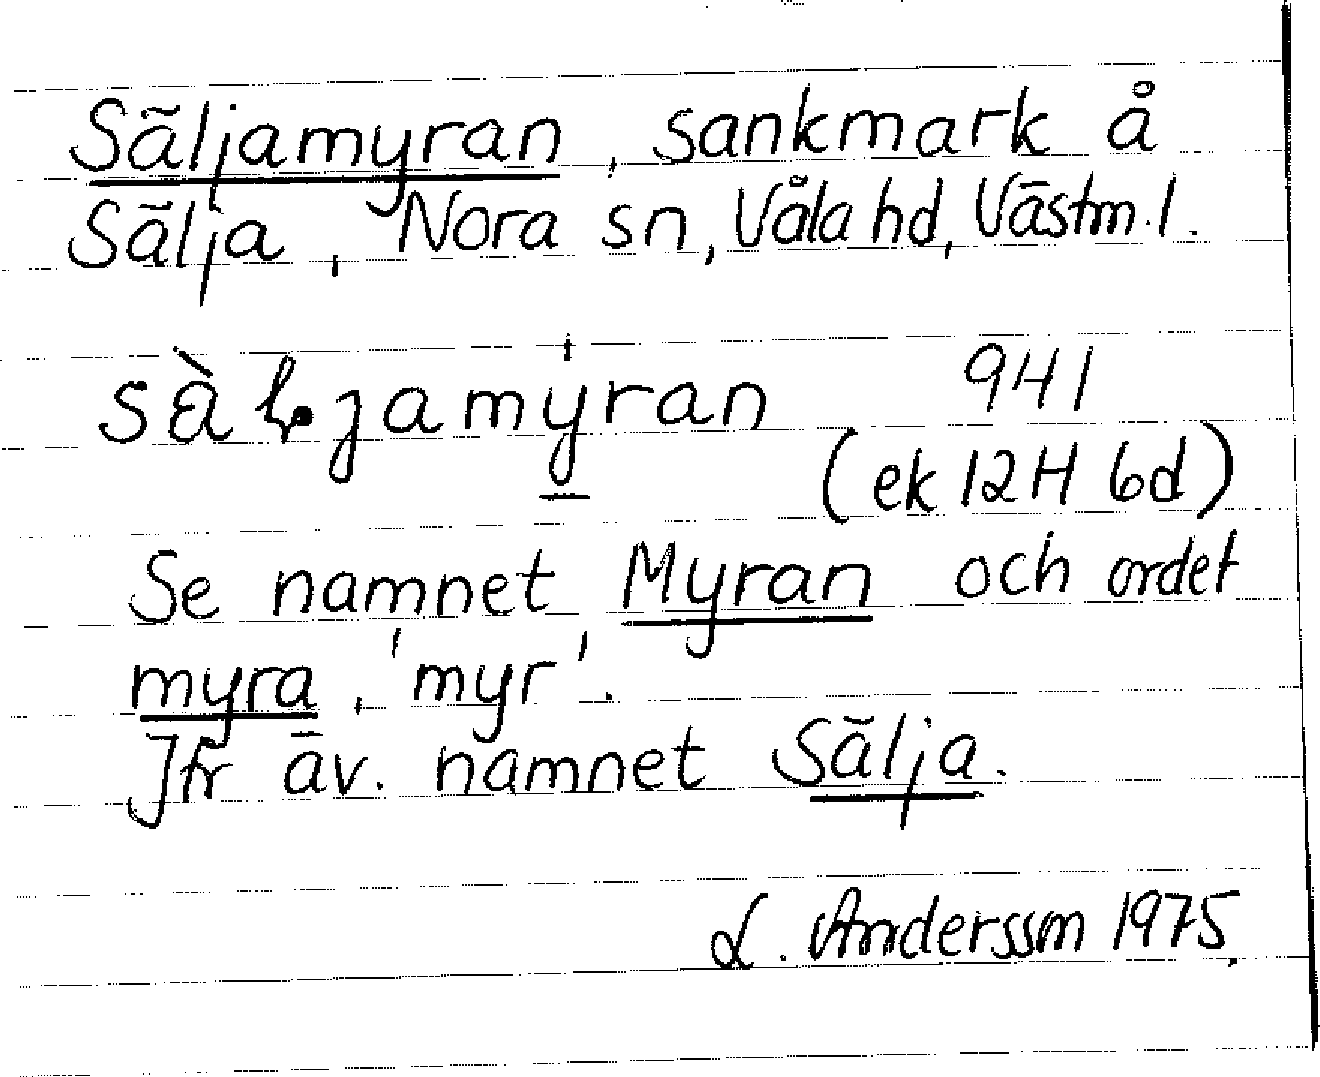 Säljamyran, sankmark å
Sälja, Nora sn, Våla hd, Västm.l.
941
(ek 12H 6d)
Se namnet Myran och ordet
myra, 'myr'.
Jfr äv. namnet Sälja.
L. Andersson 1975.